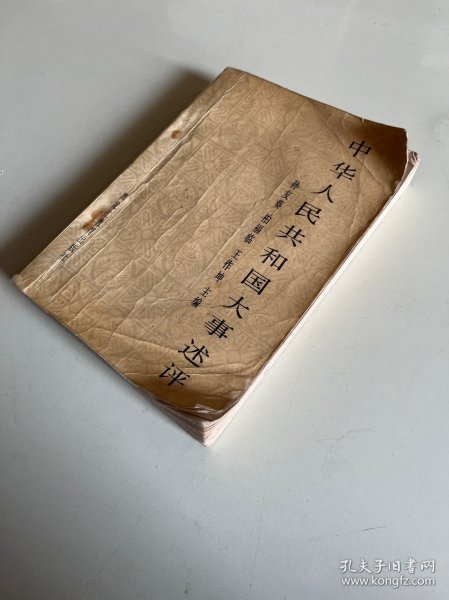 中华人民共和国大事述评
孙友葵 柏福临 王作坤 主编
孔夫子旧书网
www.kongfz.com